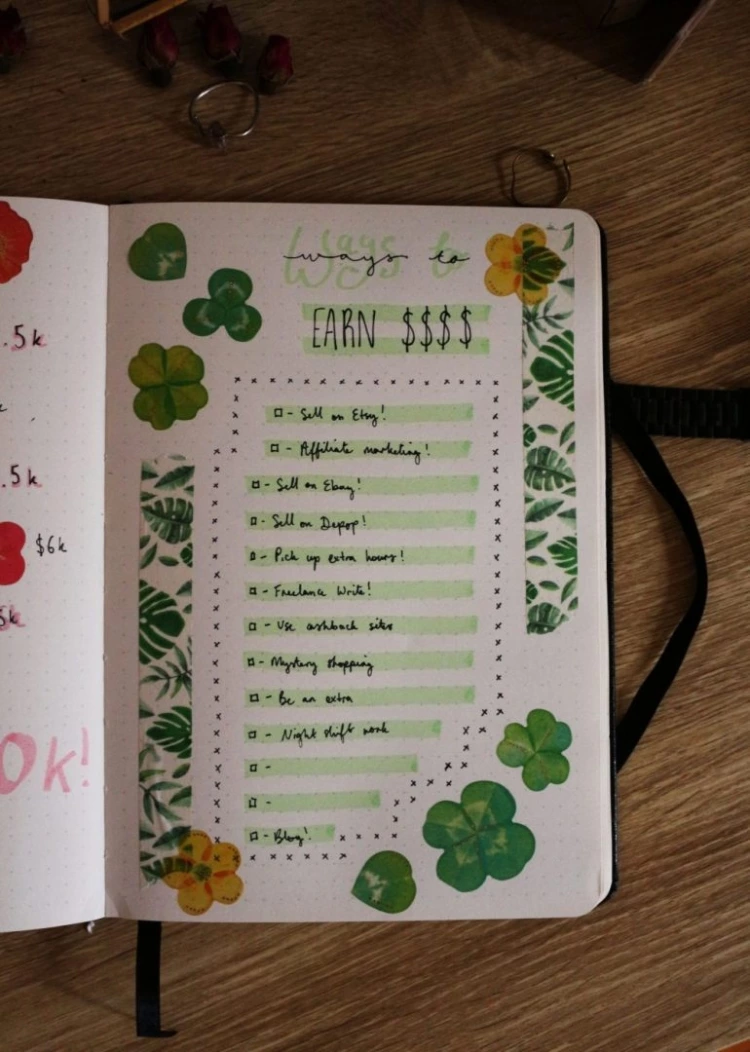 Ways to
ways to
EARN $$$$
□ - Sell on Etsy!
□ - Affiliate marketing!
□ - Sell on Ebay!
□ - Sell on Depop!
□ - Pick up extra hours!
□ - Freelance Write!
□ - Use cashback sites
□ - Mystery shopping
□ - Be an extra
□ - Night shift work
□ -
□ -
□ - Blog!
.5k
.5k
$6k
5k
0k!